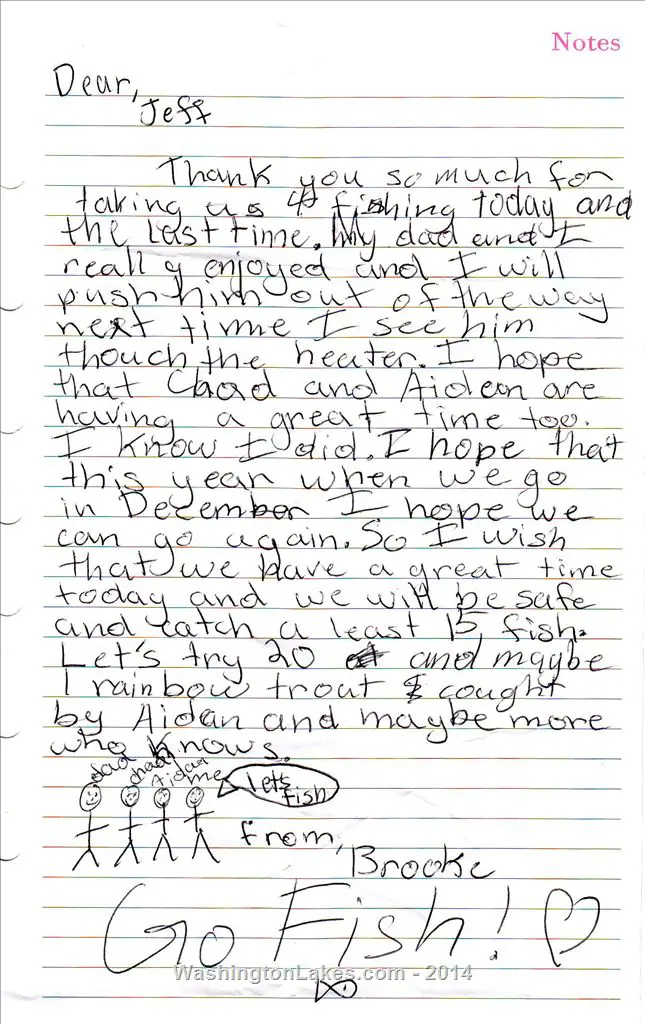 Notes
Dear,
Jeff
Thank you so much for
taking us 4 fishing today and
the last time. My dad and I
really enjoyed and I will
push him out of the way
next time I see him
thouch the heater. I hope
that Chad and Aidean are
having a great time too.
I know I did. I hope that
this year when we go
in December I hope we
can go again. So I wish
that we have a great time
today and we will be safe
and catch a least 15 fish.
Let's try 20 and maybe
1 rainbow trout cought
by Aidan and maybe more
who knows.
dad chad Aidan me
let's
fish
from,
Brooke
Go Fish!
WashingtonLakes.com - 2014